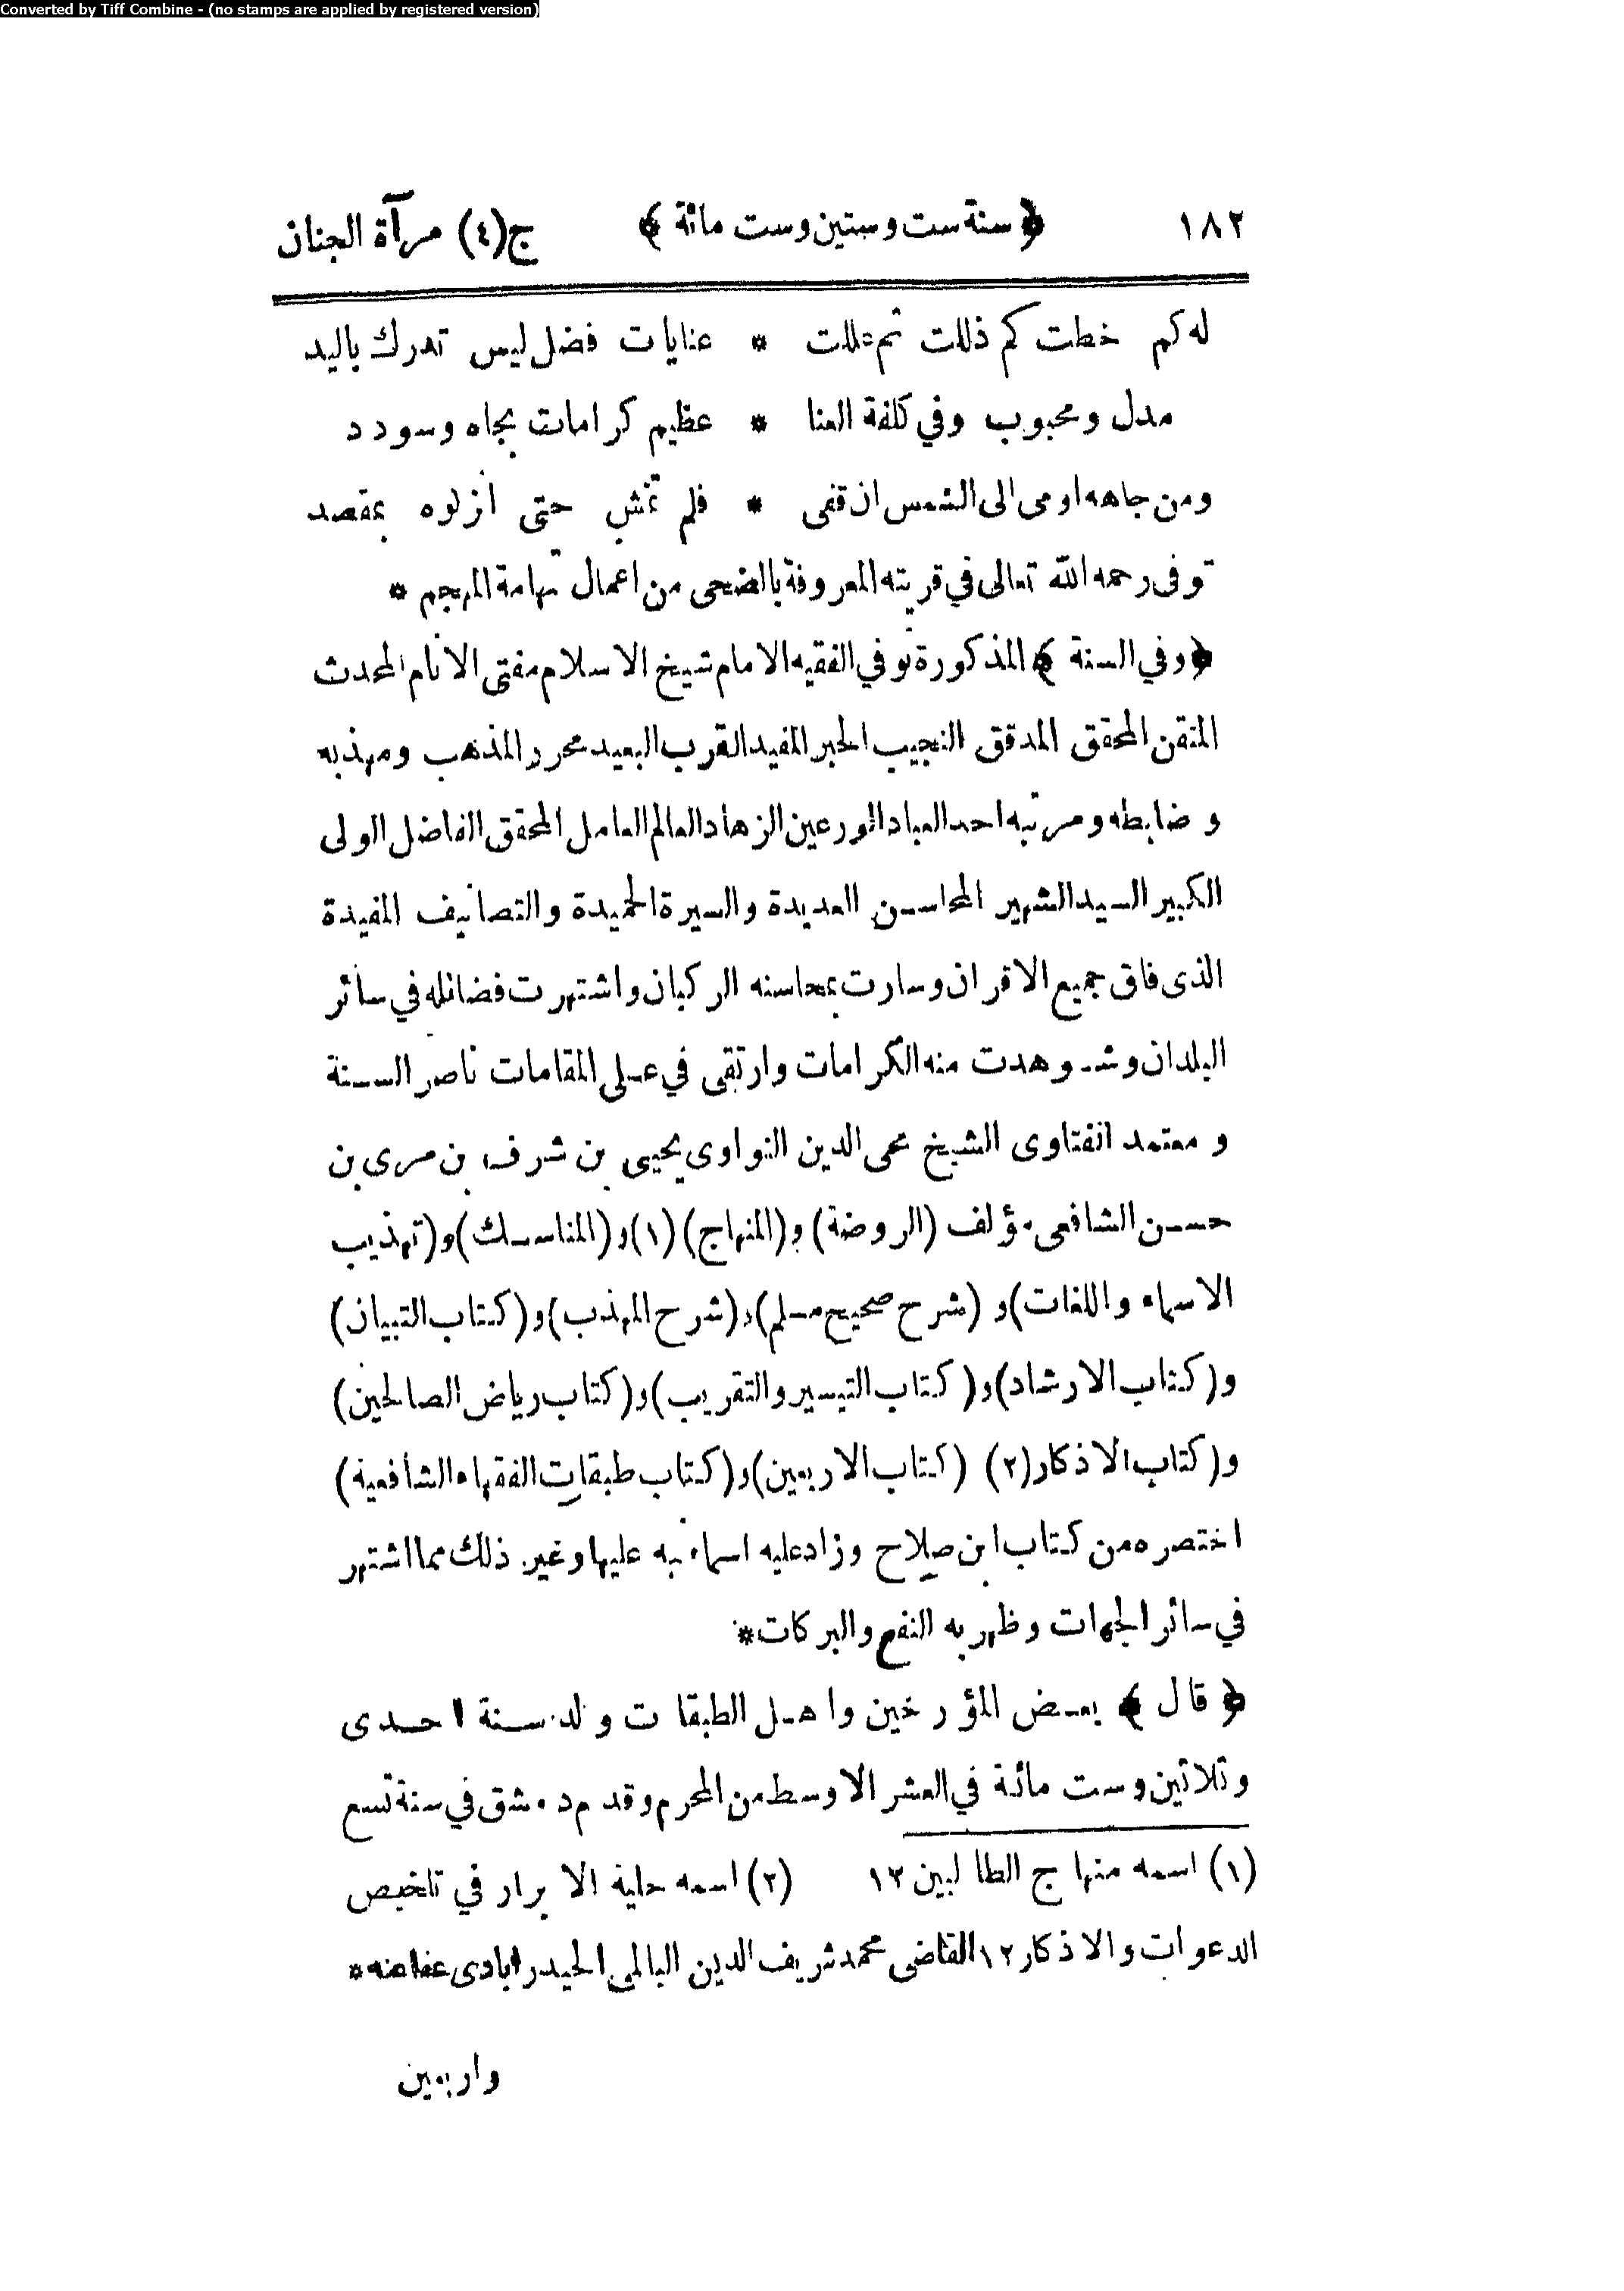 Converted by Tiff Combine - (no stamps are applied by registered version)
١٨٢ ﴿ سنة ست وستين وست مائة ﴾ ج(٤) مرآة الجنان
له كم خطت كم ذللت ثم عللت * عنايات فضل ليس تدرك باليد
مدل ومحبوب وفي كلفة العنا * عظيم كرامات بجاه وسودد
ومن جاهه اومى الى الشمس ان قفى * فلم تمش حتى انزلوه بمقصد
توفى رحمه الله تعالى في قريته المعروفة بالضحى من اعمال تهامة المهجم *
﴿ وفي السنة ﴾ المذكورة توفي الفقيه الامام شيخ الاسلام مفتى الانام المحدث
المتقن المحقق المدقق النجيب الحبر المفيد القرب البعيد محرر المذهب ومهذبه
وضابطه ومرتبه احد العباد الورعين الزهاد العالم العامل المحقق الفاضل الولى
الكبير السيد الشهير المحاسن العديدة والسيرة الحميدة والتصانيف المفيدة
الذى فاق جميع الاقران وسارت بمحاسنه الركبان واشتهرت فضائله في سائر
البلدان وشوهدت منه الكرامات وارتقى في على المقامات ناصر السنة
ومعتمد الفتاوى الشيخ محى الدين النواوى يحيى بن شرف بن مرى بن
حسن الشافعى مؤلف (الروضة) و(المنهاج) (١) و(المناسك) و(تهذيب
الاسماء واللغات) و (شرح صحيح مسلم) و(شرح المهذب) و(كتاب التبيان)
و(كتاب الارشاد) و(كتاب التيسير والتقريب) و(كتاب رياض الصالحين)
و(كتاب الاذكار (٢) (كتاب الاربعين) و(كتاب طبقات الفقهاء الشافعية)
اختصره من كتاب ابن صلاح وزاد عليه اسماء نبه عليها وغير ذلك مما اشتهر
في سائر الجهات وظهر به النفع والبركات *
﴿ قال ﴾ بعض المؤرخين واهل الطبقات ولد سنة احدى
وثلاثين وست مائة في العشر الاوسط من المحرم وقدم دمشق في سنة تسع
(١) اسمه منهاج الطالبين ١٢ (٢) اسمه حلية الابرار في تلخيص
الدعوات والاذكار ١٢ القاضى محمد شريف الدين الحيدرابادى عفا عنه *
واربعين